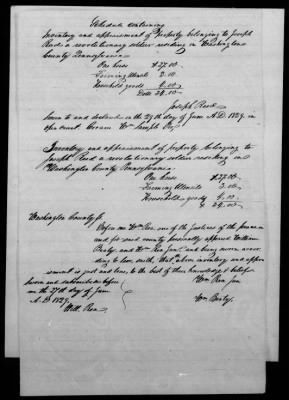 Schedule containing
Inventory and appraisement of Property belonging to Joseph
Reed a revolutionary soldier residing in Washington
County Pennsylvania
One horse $27.00
Farming Utensils 3.00
Household goods
Dolls
Joseph Reed
Sworn to and declared on the 27th day of June A.D. 1829. in
open court Coram
Inventory and appraisement of property belonging to
Joseph Reed a revolutionary soldier residing in
Washington County Pennsylvania.
One horse
Farming Utensils 3.00
Household goods
Washington County Ss
Before me Wm Rea one of the Justices of the peace in
and for said county personally appeared William
and Wm Rea Jun. and being sworn according
to law saith that above inventory and appraisement
is just and true, to the best of their knowledge & belief
Sworn and subscribed before
me the 27th day of June
A.D. 1829.
Will. Rea
Wm Rea Jun
Wm